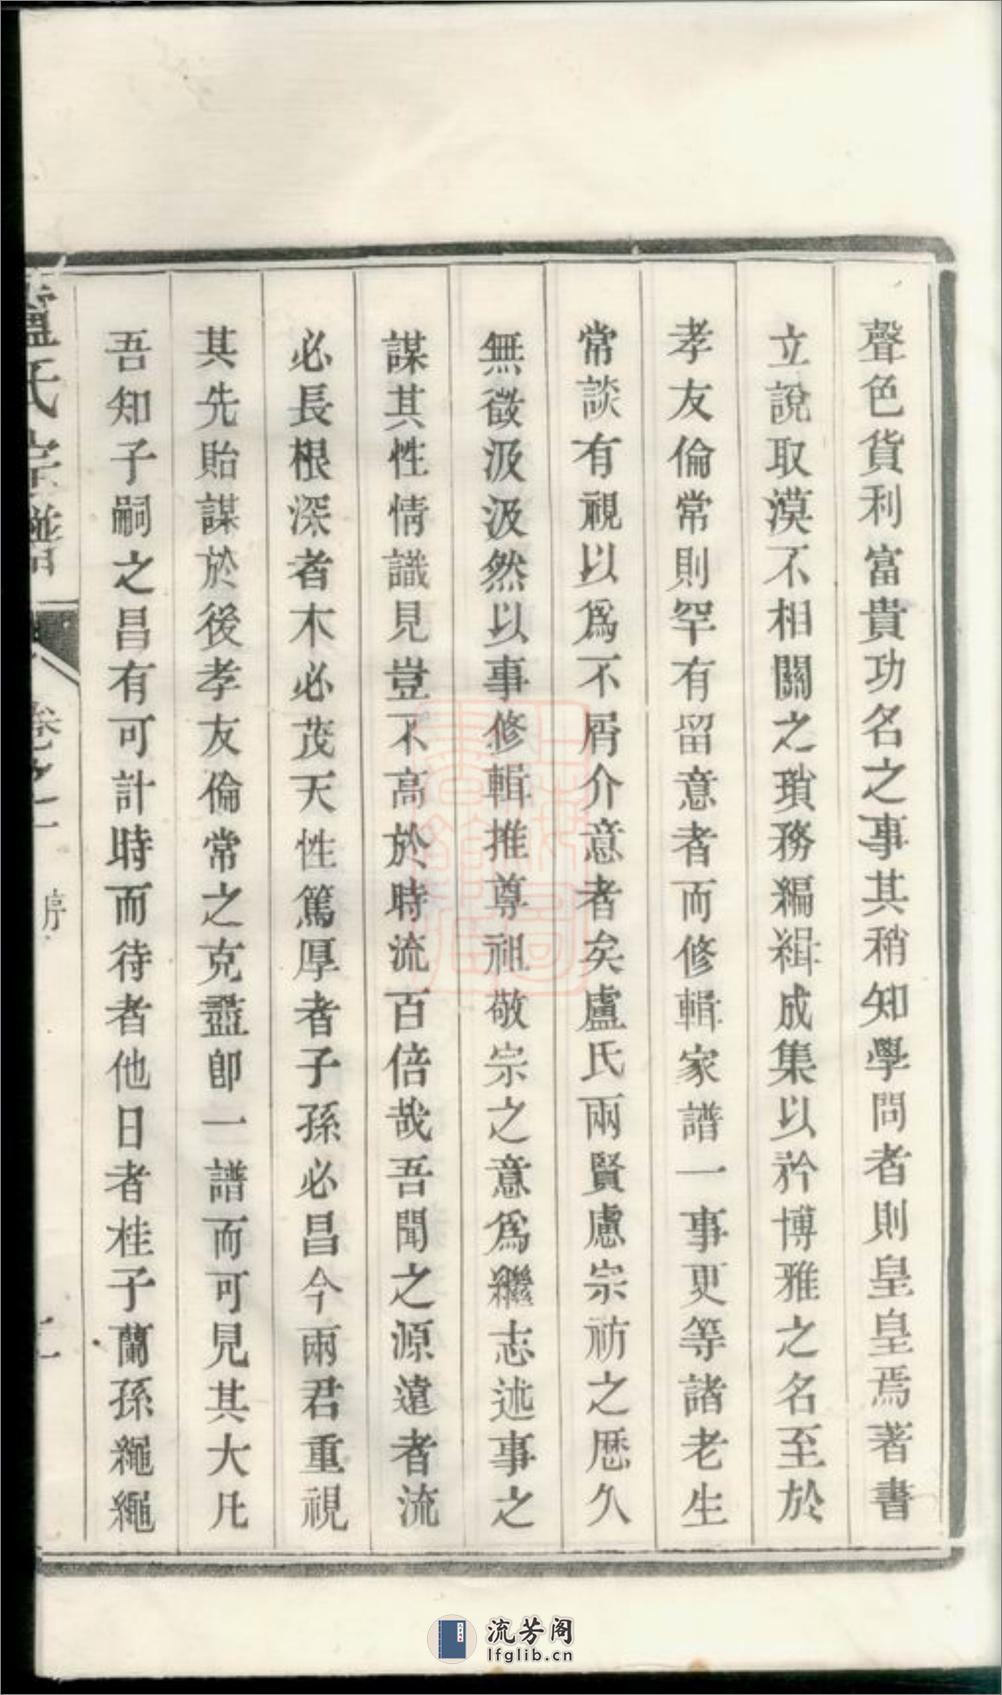 聲色貨利富貴功名之事其稍知學問者則皇皇焉著書
立說取漠不相關之瑣務編緝成集以矜博雅之名至於
孝友倫常則罕有留意者而修輯家譜一事更等諸老生
常談有視以爲不屑介意者矣盧氏兩賢慮宗祊之歷久
無徵汲汲然以事修輯推尊祖敬宗之意爲繼志述事之
謀其性情識見豈不高於時流百倍哉吾聞之源遠者流
必長根深者木必茂天性篤厚者子孫必昌今兩君重視
其先貽謀於後孝友倫常之克盡卽一譜而可見其大凡
吾知子嗣之昌有可計時而待者他日者桂子蘭孫繩繩
盧氏宗譜 卷之一 序 二
流芳阁
lfglib.cn